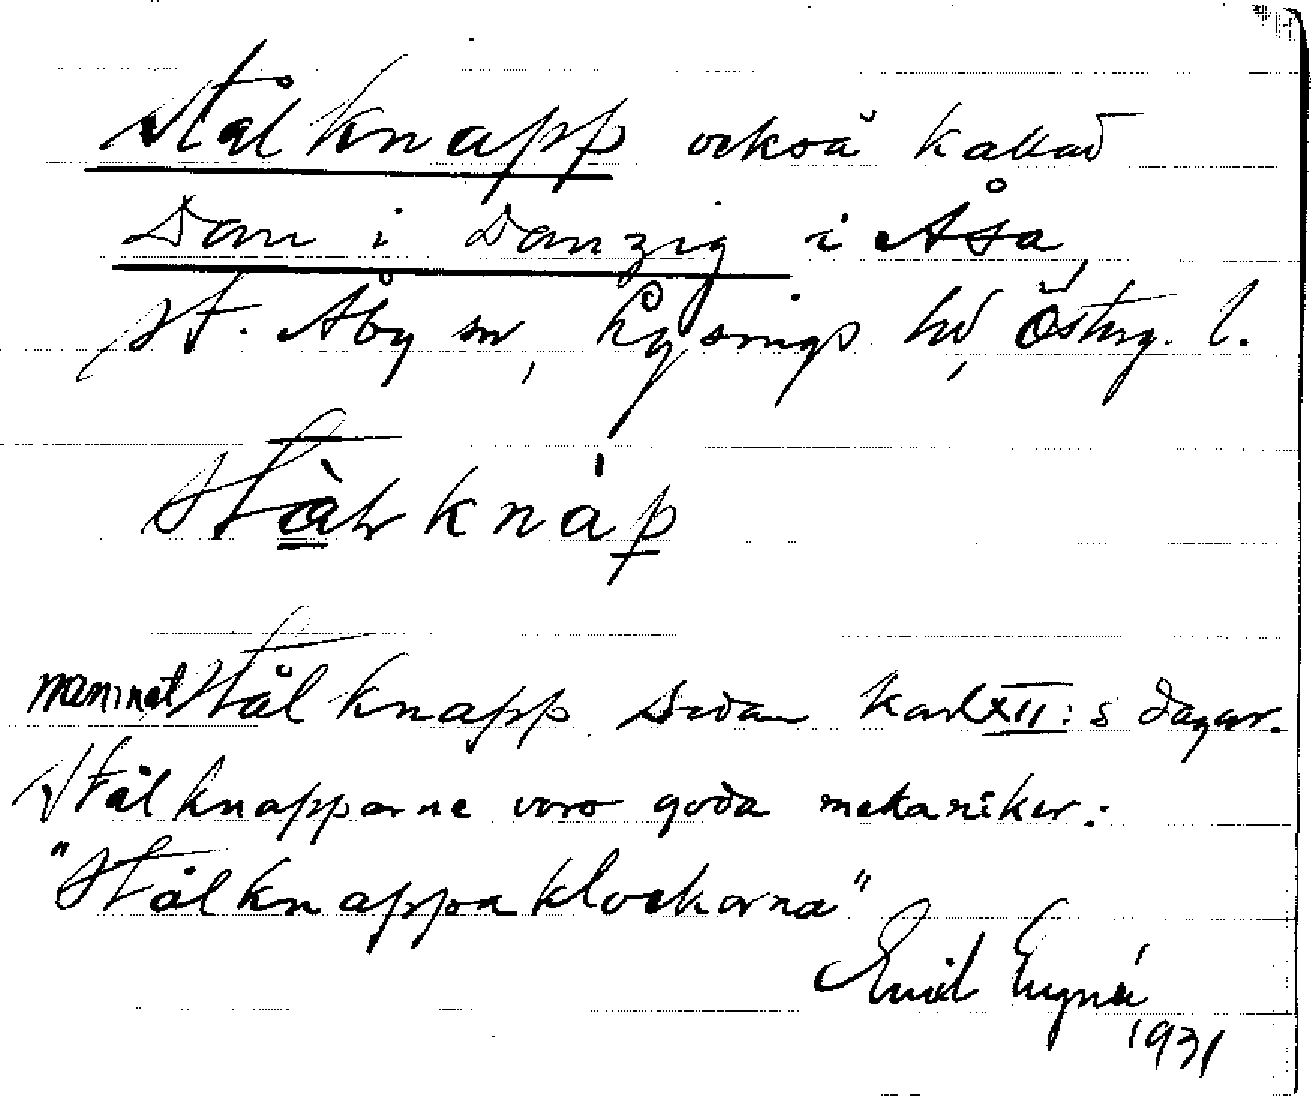 Stålknapp också kallad
Dan i Danzig i Åsa,
St. Åby sn, Lysings hd, Österg. l.
Stål knap
namnet Stål knapp sedan Karl XII:s dagar.
Stålknapparne voro goda mekaniker.:
"Stålknappa klockorna"
Emil
1931